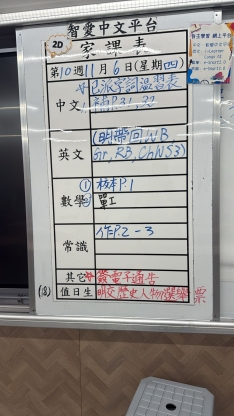 智愛中文平台
2D 家課表
第10週11月6日(星期四)
中文
已派字詞溫習表
補P.31, 32
英文
(明帶回NB
Gr, RB, Ch1NS3)
數學
① 板本P.1
② 單工
常識
作P.2-3
其它 簽電子通告
值日生 明交歷史人物選舉票